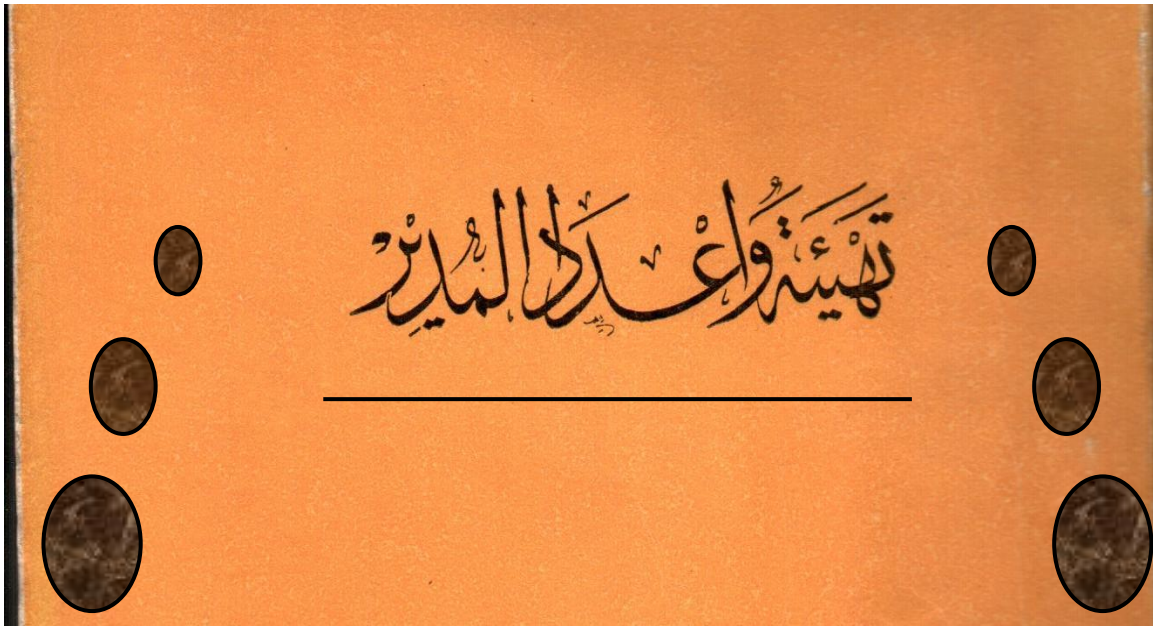 تهيئة وإعداد المدير